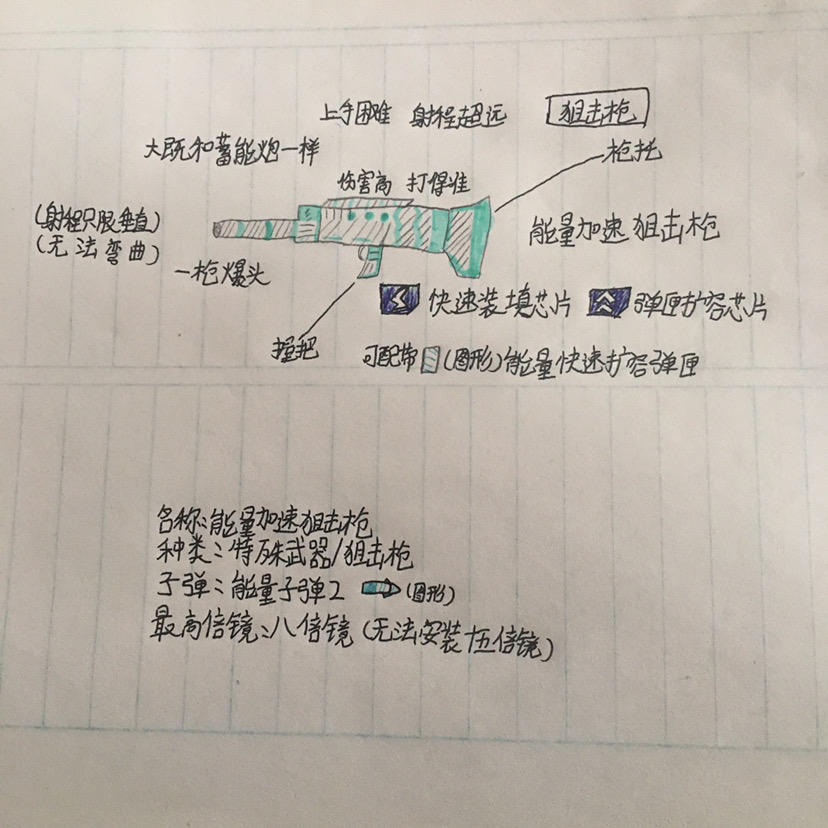 上手困难 射程超远 狙击枪
大既和蓄能炮一样 枪托
伤害高 打得准
(射程只限垂直)
(无法弯曲) 能量加速狙击枪
一枪爆头
快速装填芯片 弹匣扩容芯片
握把 可配带(图形)能量快速扩容弹匣
名称:能量加速狙击枪
种类:特殊武器/狙击枪
子弹:能量子弹2 (图形)
最高倍镜:八倍镜(无法安装十五倍镜)